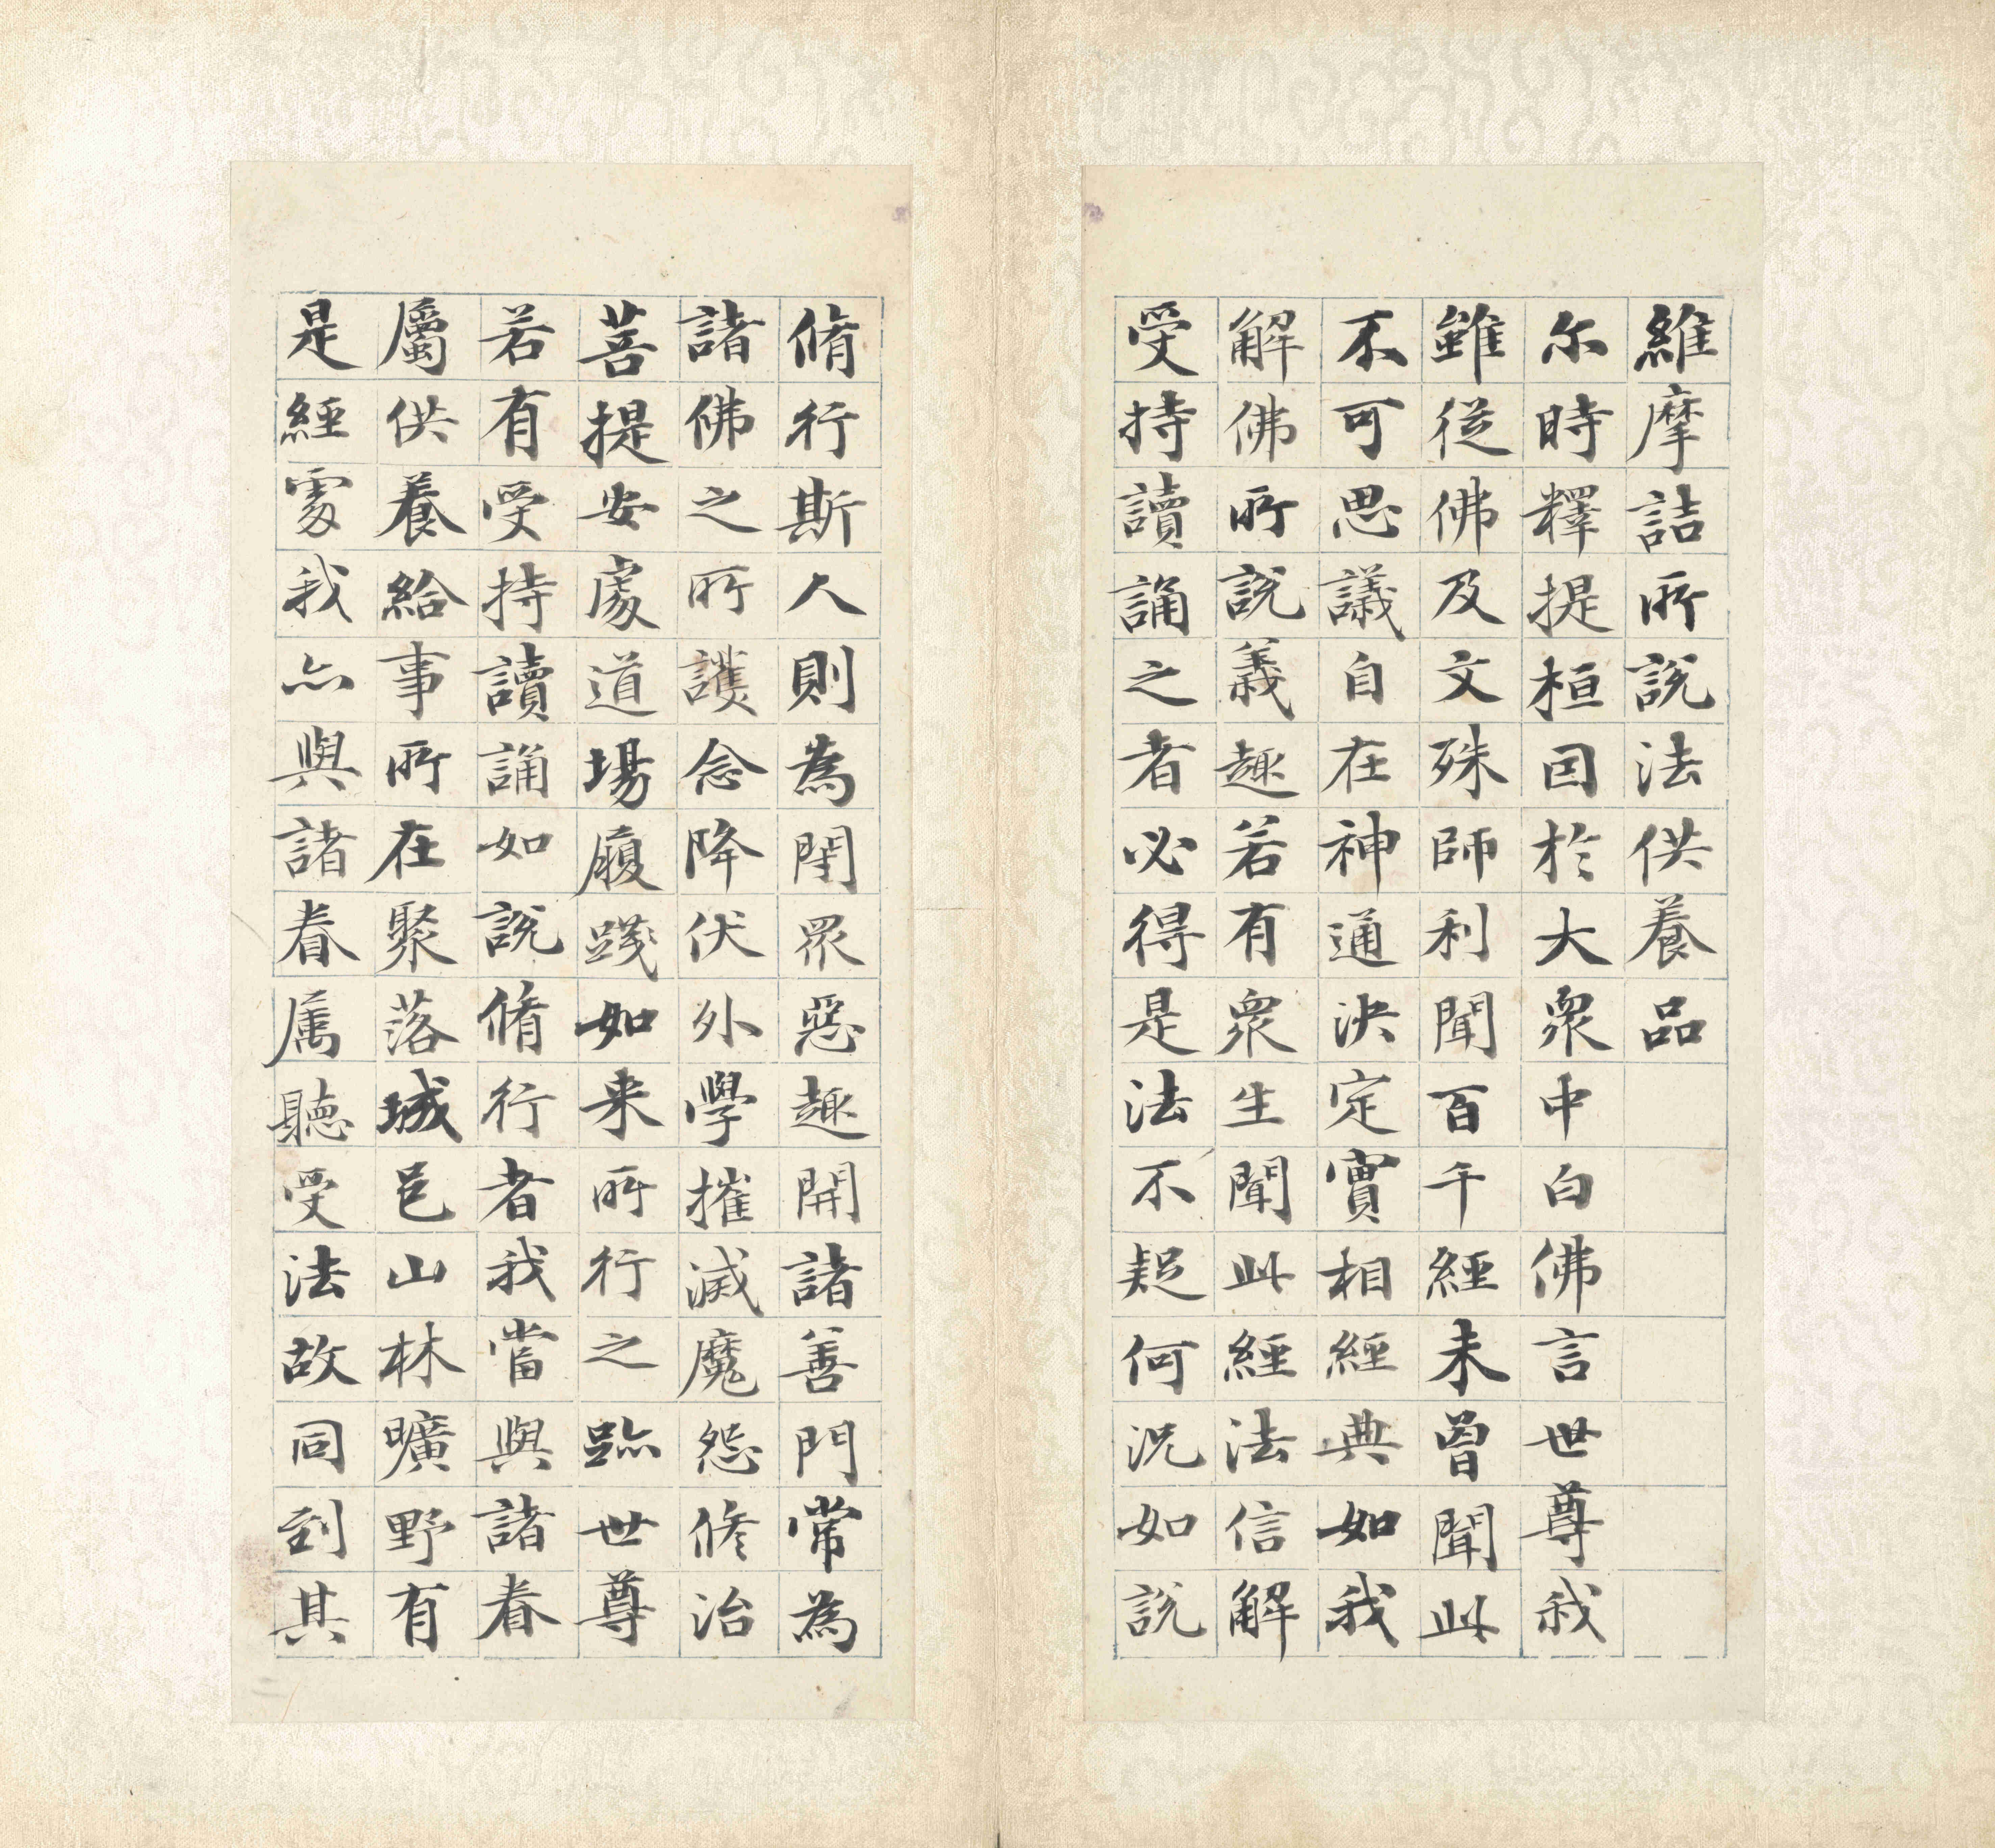 維摩詰所說法供養品
尒時釋提桓因於大衆中白佛言世尊我
雖從佛及文殊師利聞百千經未曾聞此
不可思議自在神通決定實相經典如我
解佛所說義趣若有衆生聞此經法信解
受持讀誦之者必得是法不疑何況如說
脩行斯人則為閉衆惡趣開諸善門常為
諸佛之所護念降伏外學摧滅魔怨修治
菩提安處道場履踐如来所行之跡世尊
若有受持讀誦如說脩行者我當與諸眷
屬供養給事所在聚落城邑山林曠野有
是經處我亦與諸眷屬聽受法故同到其